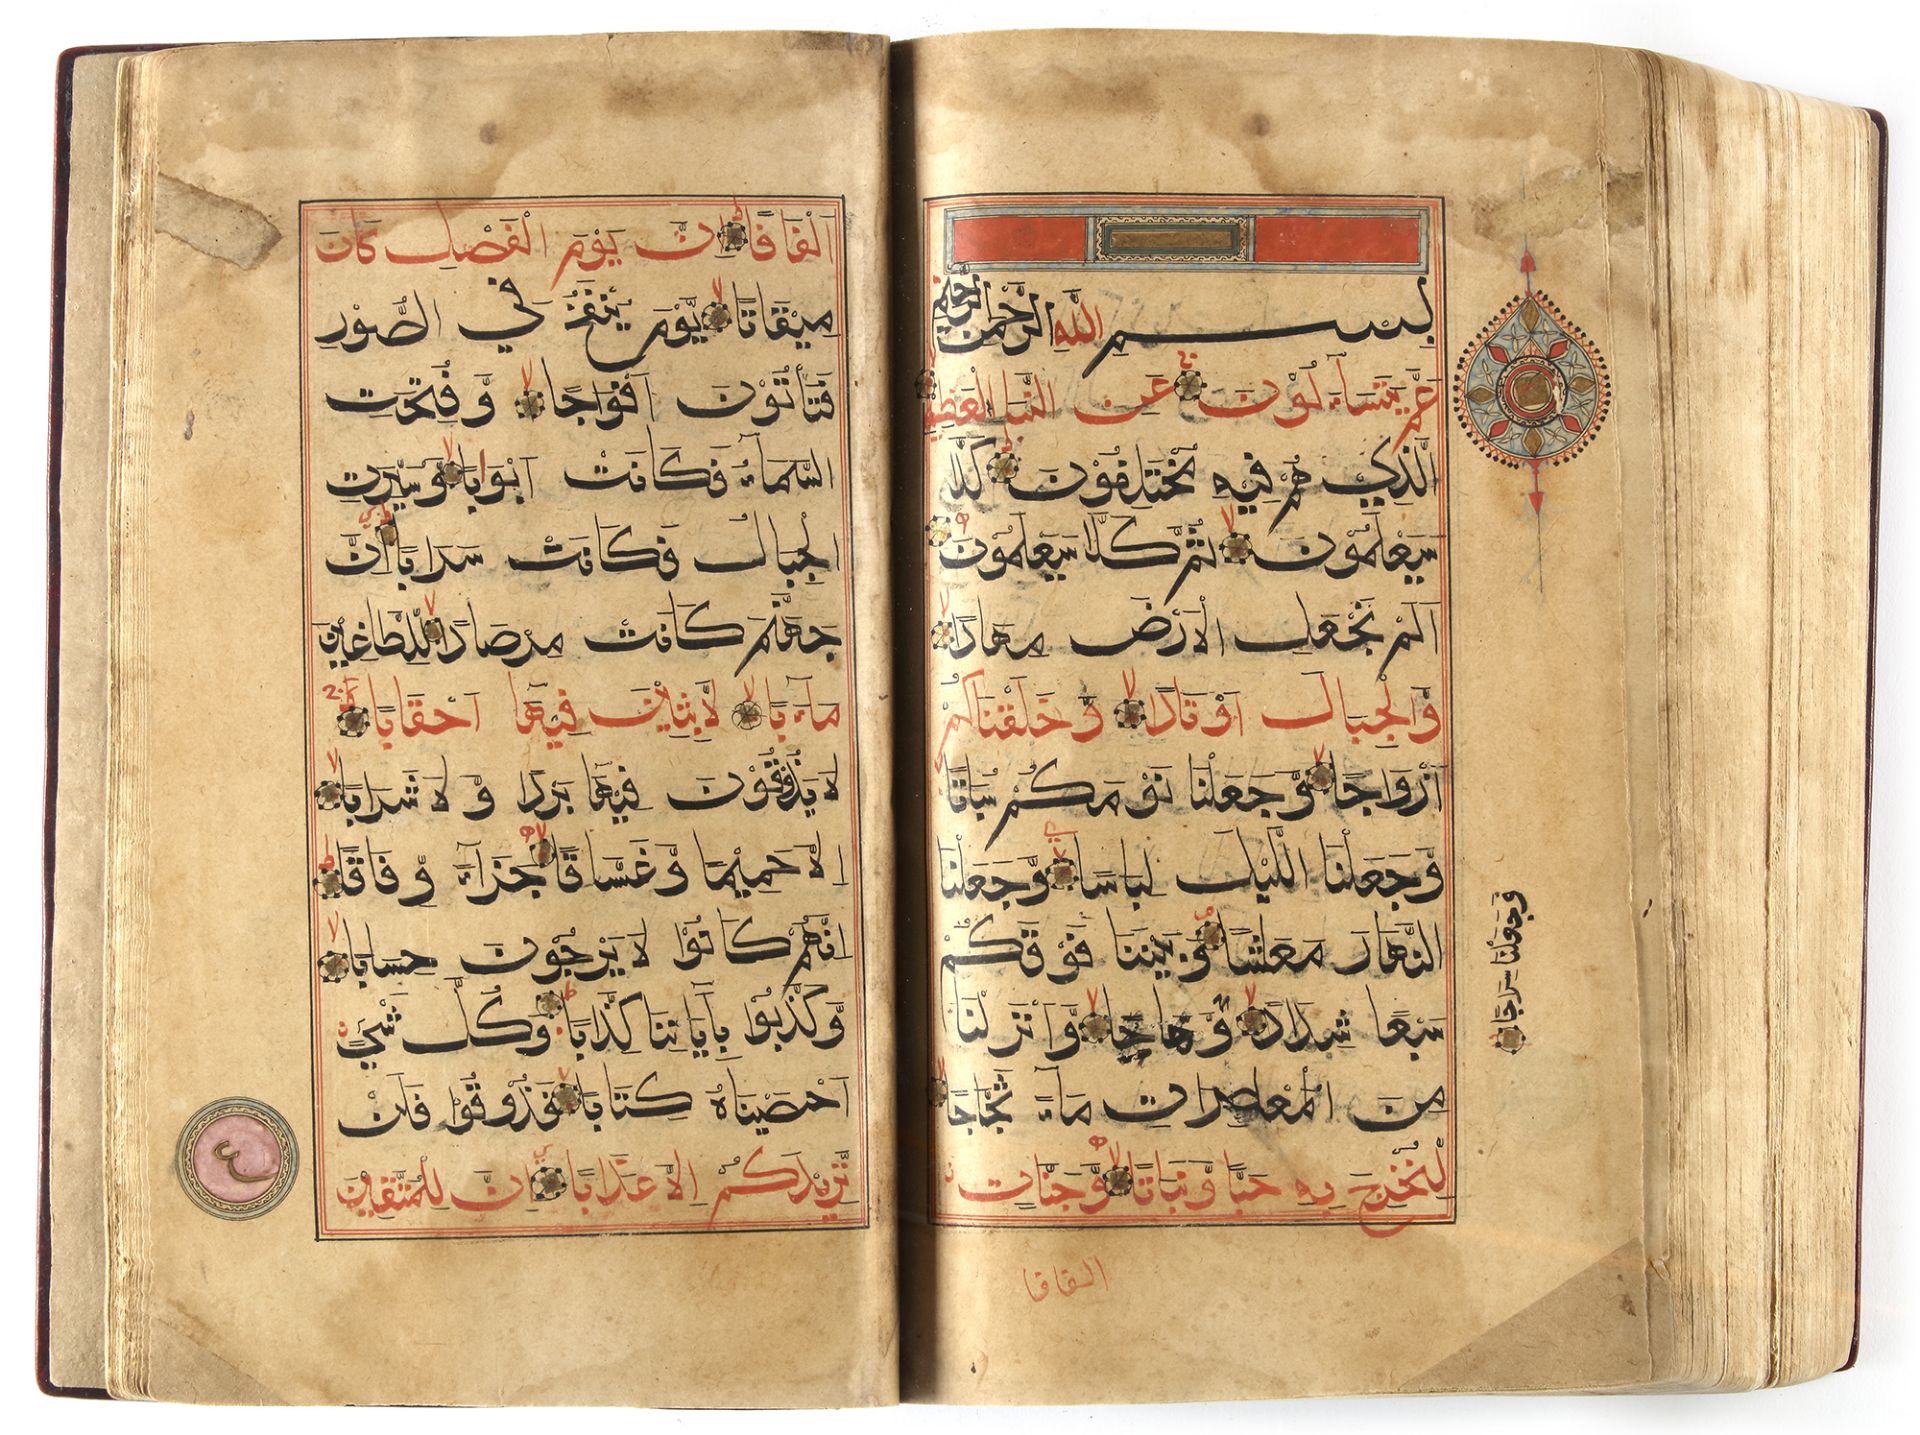 بِسْمِ اللّٰهِ الرَّحْمٰنِ الرَّحِيْمِ
عَمَّ يَتَسَآءَ لُوْنَ عَنِ النَّبَاِ الْعَظِيْمِ
الَّذِيْ هُمْ فِيْهِ مُخْتَلِفُوْنَ كَلَّا
سَيَعْلَمُوْنَ ثُمَّ كَلَّا سَيَعْلَمُوْنَ
اَلَمْ نَجْعَلِ الْاَرْضَ مِهَادًا
وَّالْجِبَالَ اَوْتَادًا وَّخَلَقْنَاكُمْ
اَزْوَاجًا وَّجَعَلْنَا نَوْمَكُمْ سُبَاتًا
وَّجَعَلْنَا اللَّيْلَ لِبَاسًا وَّجَعَلْنَا
النَّهَارَ مَعَاشًا وَّبَنَيْنَا فَوْقَكُمْ
سَبْعًا شِدَادًا وَّهَّاجًا وَّاَنْزَلْنَا
مِنَ الْمُعْصِرَاتِ مَآءً ثَجَّاجًا
لِنُخْرِجَ بِهٖ حَبًّا وَّنَبَاتًا وَّجَنَّاتٍ
وَجَعَلْنَا سِرَاجًا
اَلْفَافًا اِنَّ يَوْمَ الْفَصْلِ كَانَ
مِيْقَاتًا يَّوْمَ يُنْفَخُ فِي الصُّوْرِ
فَتَأْتُوْنَ اَفْوَاجًا وَّفُتِحَتِ
السَّمَآءُ فَكَانَتْ اَبْوَابًا وَّسُيِّرَتِ
الْجِبَالُ فَكَانَتْ سَرَابًا اِنَّ
جَهَنَّمَ كَانَتْ مِرْصَادًا لِّلطَّاغِيْنَ
مَآبًا لَّابِثِيْنَ فِيْهَا اَحْقَابًا
لَا يَذُوْقُوْنَ فِيْهَا بَرْدًا وَّلَا شَرَابًا
اِلَّا حَمِيْمًا وَّغَسَّاقًا جَزَآءً وِّفَاقًا
اِنَّهُمْ كَانُوْا لَا يَرْجُوْنَ حِسَابًا
وَّكَذَّبُوْا بِآيَاتِنَا كِذَّابًا وَكُلَّ شَيْءٍ
اَحْصَيْنَاهُ كِتَابًا فَذُوْقُوْا فَلَنْ
نَّزِيْدَكُمْ اِلَّا عَذَابًا اِنَّ لِلْمُتَّقِيْنَ
ع